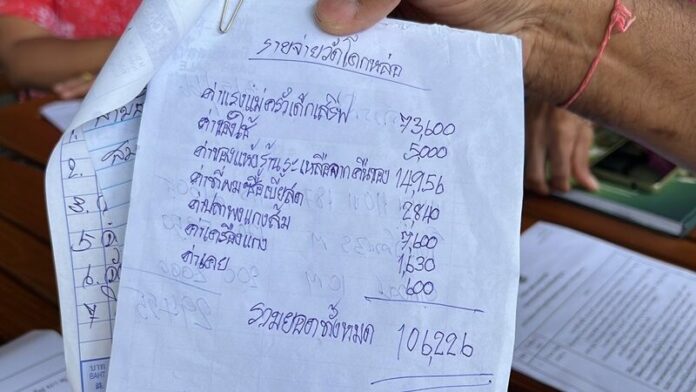 รายจ่ายวัดโคกหล่อ
ค่าแรงแม่ครัวเด็กเสริฟ 73,600
ค่าของใช้ 5,000
ค่าของแห้งร้าน 14,956
ค่าที่ผมซื้อเบี้ยสด 2840
ค่าปลาพุงแกงส้ม 7,600
ค่าเครื่องแกง 1,630
ค่าเคย 600
รวมยอดทั้งหมด 106,226
2.
3.
5
6.
7